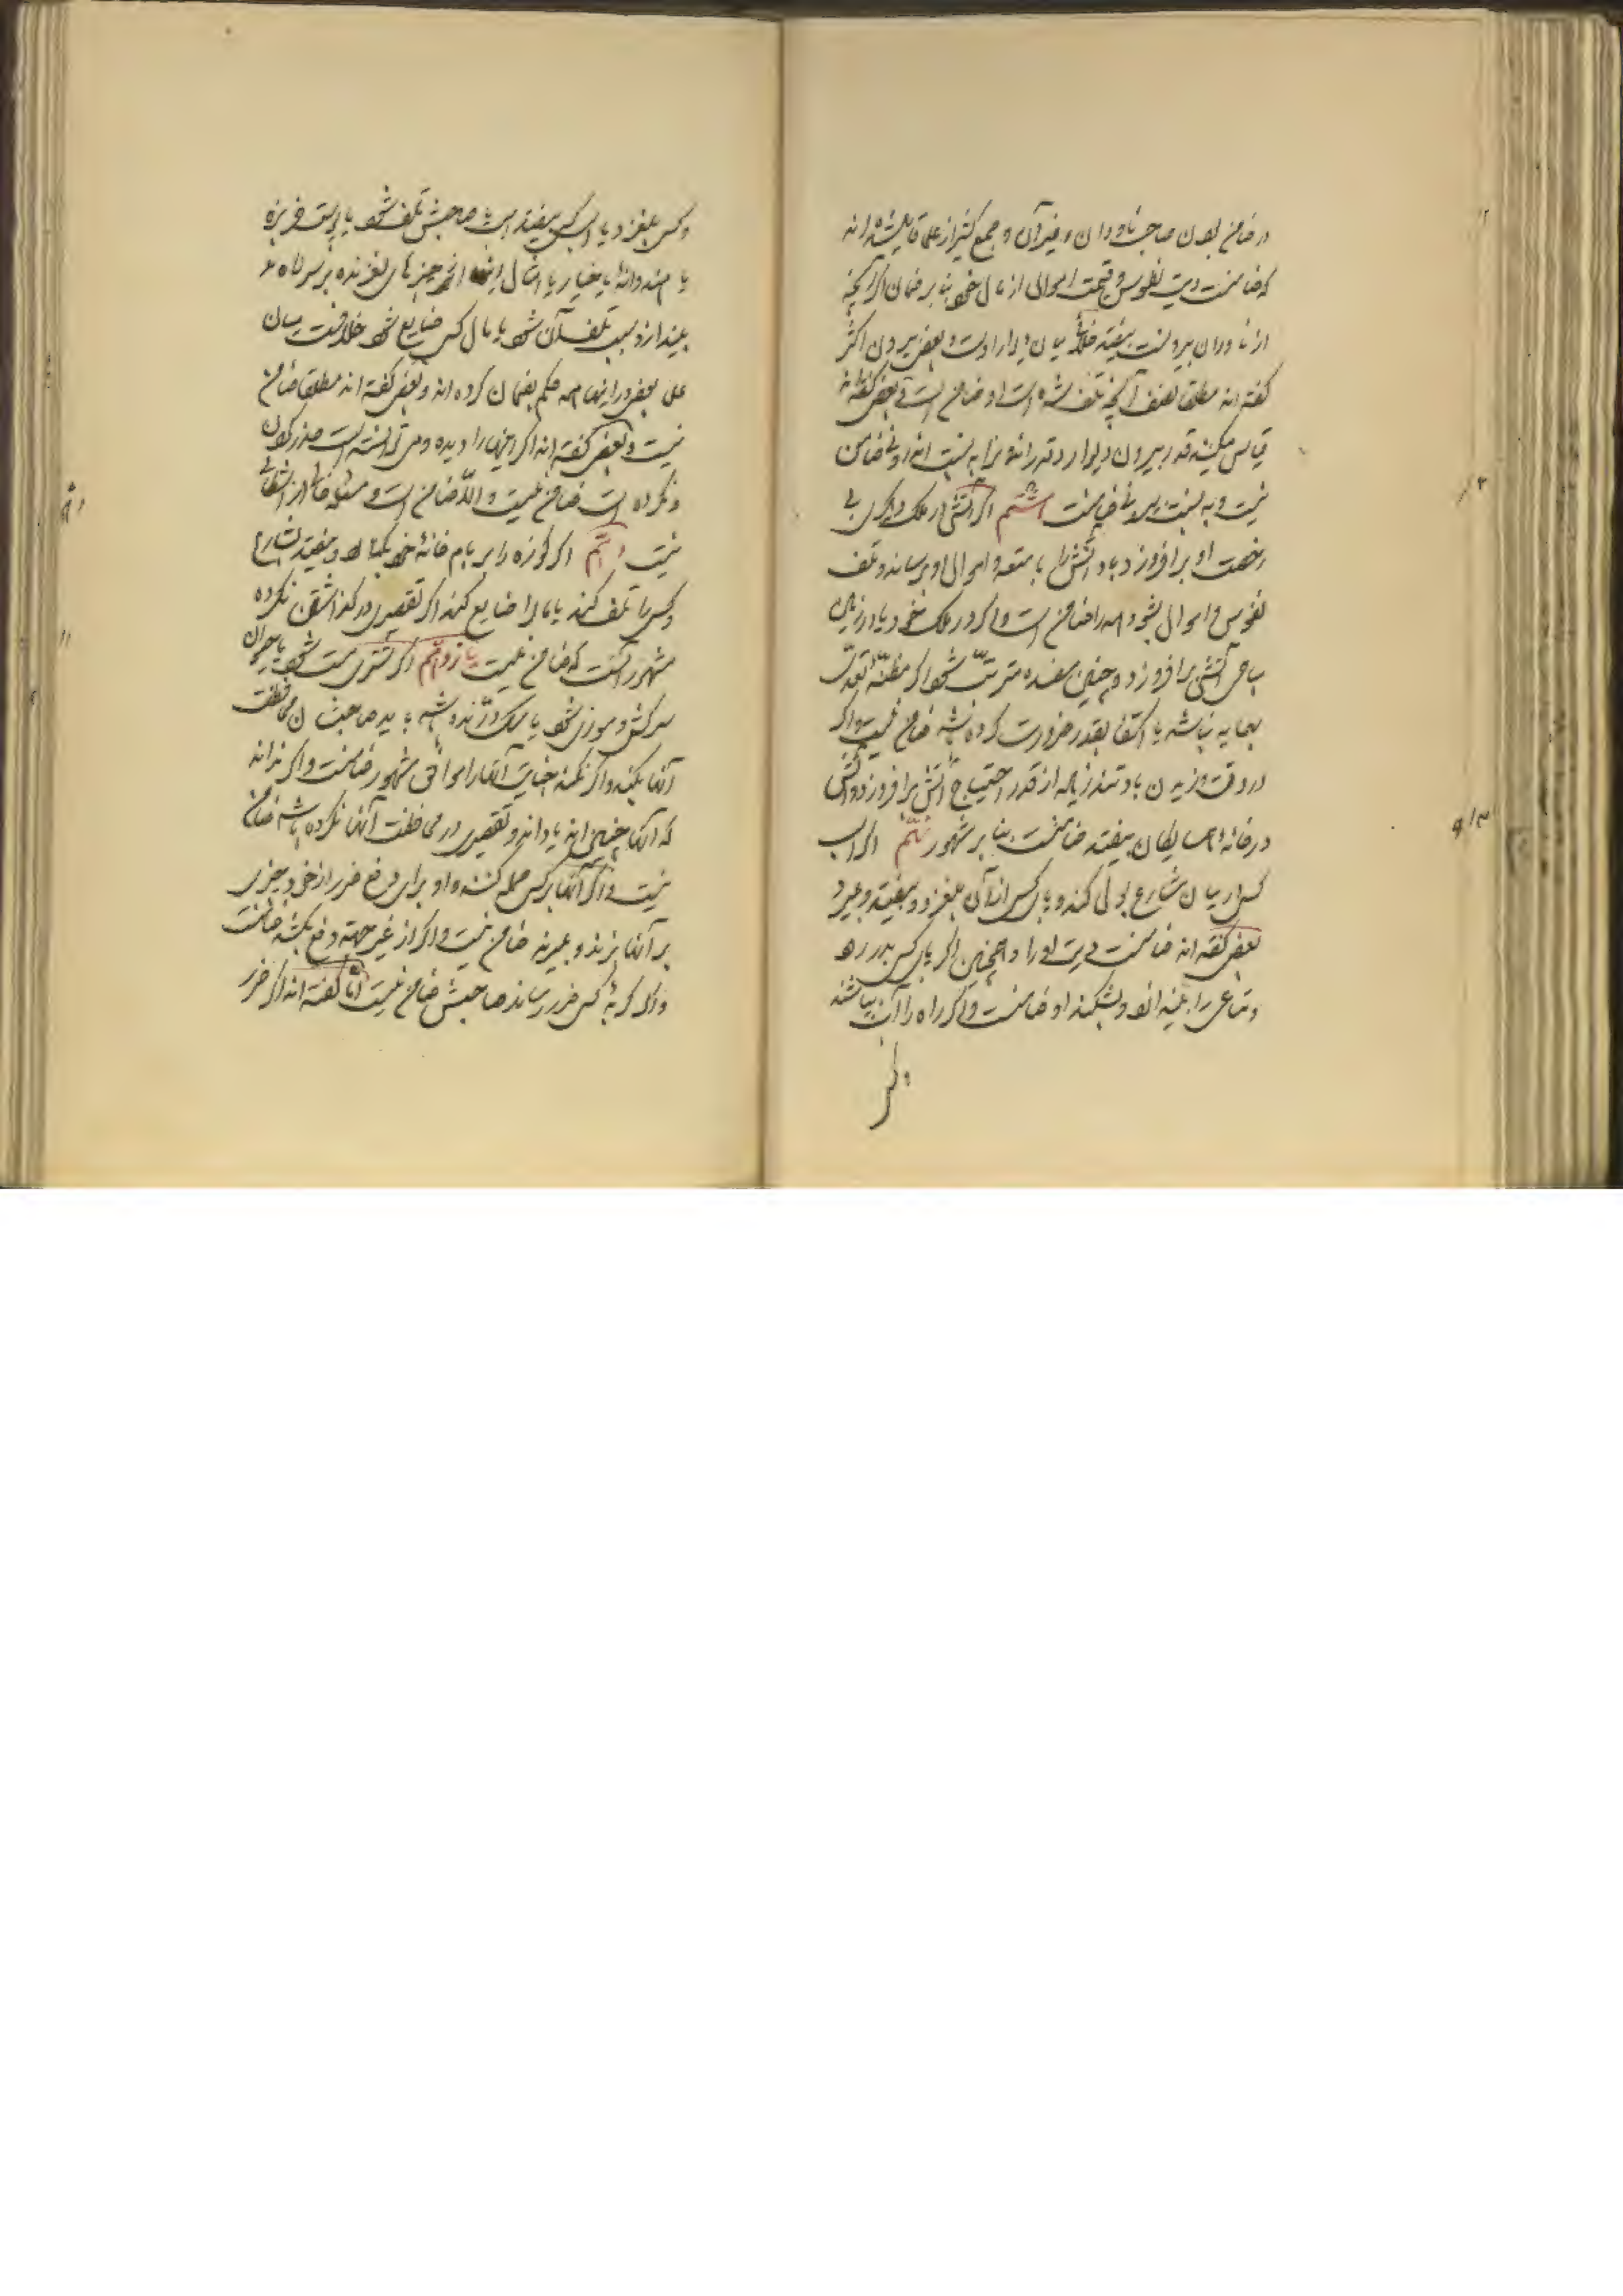 در ضامن بودن صاحب ناودان و غیر آن و جمع کثیر از علما قایل شده اند
که ضامنست دیت نفوس و قیمت اموال از مال خود بنا بر ضمان اگر آنچه
از ناودان بیرونست بیفتد میان دیوار او است و بعضی بیرون اکثر
گفته اند مطلقا نصف آنچه تلف شده است او ضامن است و بعضی گفته اند
قیاس میکنند قدر بیرون دیوار و قدر اندرونرا به نسبت اندرونی ضامن
نیست و به نسبت بیرونی ضامنست هشتم اگر آتشی در ملک دیگری بی
رخصت او برافروزد و باد آتش را بامتعه و اموال او برساند و تلف
نفوس و اموال بشود همه را ضامن است و اگر در ملک خود یا در زمین
مباحی آتشی برافروزد و چنین مفسده مترتب شود اگر مظنه تعدی
بهمسایه نباشد یا اکتفا بقدر ضرورت کرده باشد ضامن نیست و اگر
در وقت وزیدن باد تند زیاده از قدر احتیاج آتش برافروزد و آتش
در خانه همسایگان بیفتد ضامنست بنا بر مشهور نهم اگر اسب
کسی در میان شارع بول کند و پای کسی از آن بلغزد و بیفتد و بمیرد
بعضی گفته اند ضامنست دیت او را و همچنین اگر پای کسی بدر رود
و متاعی را بیندازد و بشکند او ضامنست و اگر راه را آب بپاشند
و کسی بلغزد یا اسب کسی بیفتد اسب یا صاحبش تلف شود یا پوست خربزه
یا هندوانه یا خیار یا امثال اینها از چیزهای لغزنده بر سر راه
بیندازد و سبب تلف آن شود یا مال کسی ضایع شود خلافست میان
علما بعضی در اینها همه حکم بضمان کرده اند و بعضی گفته اند مطلقا ضامن
نیست و بعضی گفته اند اگر اینها را دیده و می توانسته است حذر کردن
و نکرده است ضامن نیست و الا ضامن است و مسئله خالی از اشکالی
نیست دهم اگر کوزه را بر بام خانه خود بگذارد و بیفتد بشارع
و کسی را تلف کند یا مالی را ضایع کند اگر تقصیری در گذاشتن نکرده
مشهور آنست که ضامن نیست یازدهم اگر شتری مست شود یا حیوان
سرکش و موذی شود یا سگ درنده باشد باید صاحبشان محافظت
آنها بکنند و اگر نکنند جنایت آنها را موافق مشهور ضامنست و اگر نداند
که آنها چنین اند یا داند و تقصیر در محافظت آنها نکرده باشد ضامن
نیست و اگر آنها بر کسی حمله کنند و او برای دفع ضرر از خود چیزی
بر آنها بزند و بمیرند ضامن نیست و اگر از غیر جهت دفع بکشد ضامنست
و اگر گربه کسی ضرر رساند صاحبش ضامن نیست اما گفته اند اگر ضرر